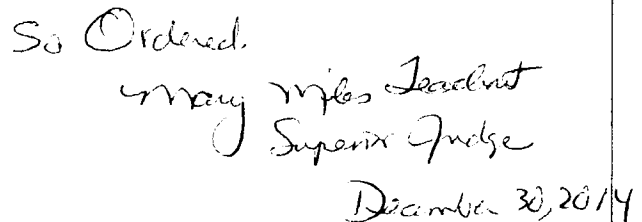 So Ordered.
Mary Miles Teachout
Superior Judge
December 30, 2014